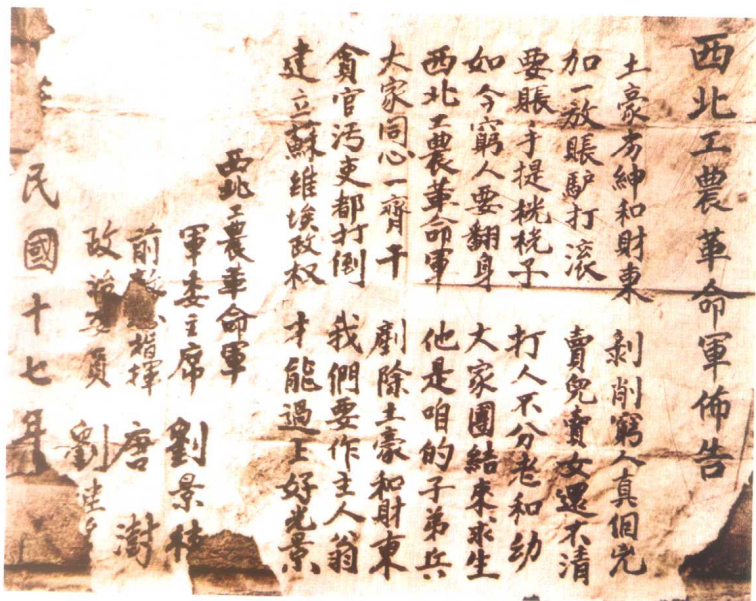 西北工農革命軍佈告
土豪劣紳和財東 剝削窮人真個兇
加一放賬驴打滚 賣兒賣女還不清
要賬手提桄桄子 打人不分老和幼
如今窮人要翻身 大家團結來求生
西北工農革命軍 他是咱的子弟兵
大家同心一齊干 剷除土豪和財東
貪官污吏都打倒 我們要作主人翁
建立蘇維埃政权 才能過上好光景
西北工農革命軍
軍委主席 劉景桂
前總指揮 唐澍
政治委員 劉
民國十七年